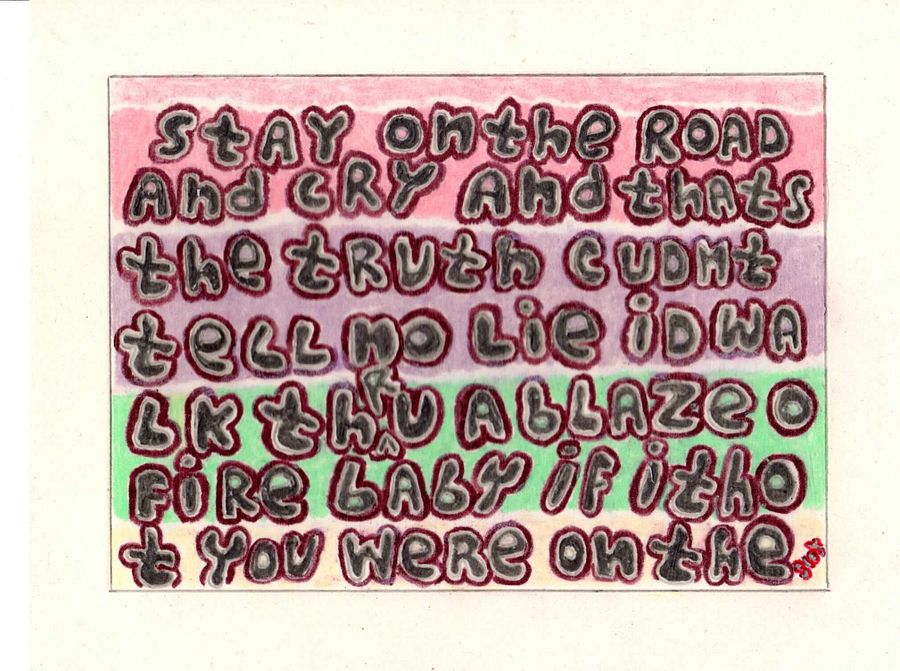 StAY ONthe ROAD
ANd CRY ANd thAts
the tRUth CUDNt
teLL NO Lie iD WA
LK thRU A bLAZe O
FiRe bAbY iF i thO
t YOU WeRe ON the